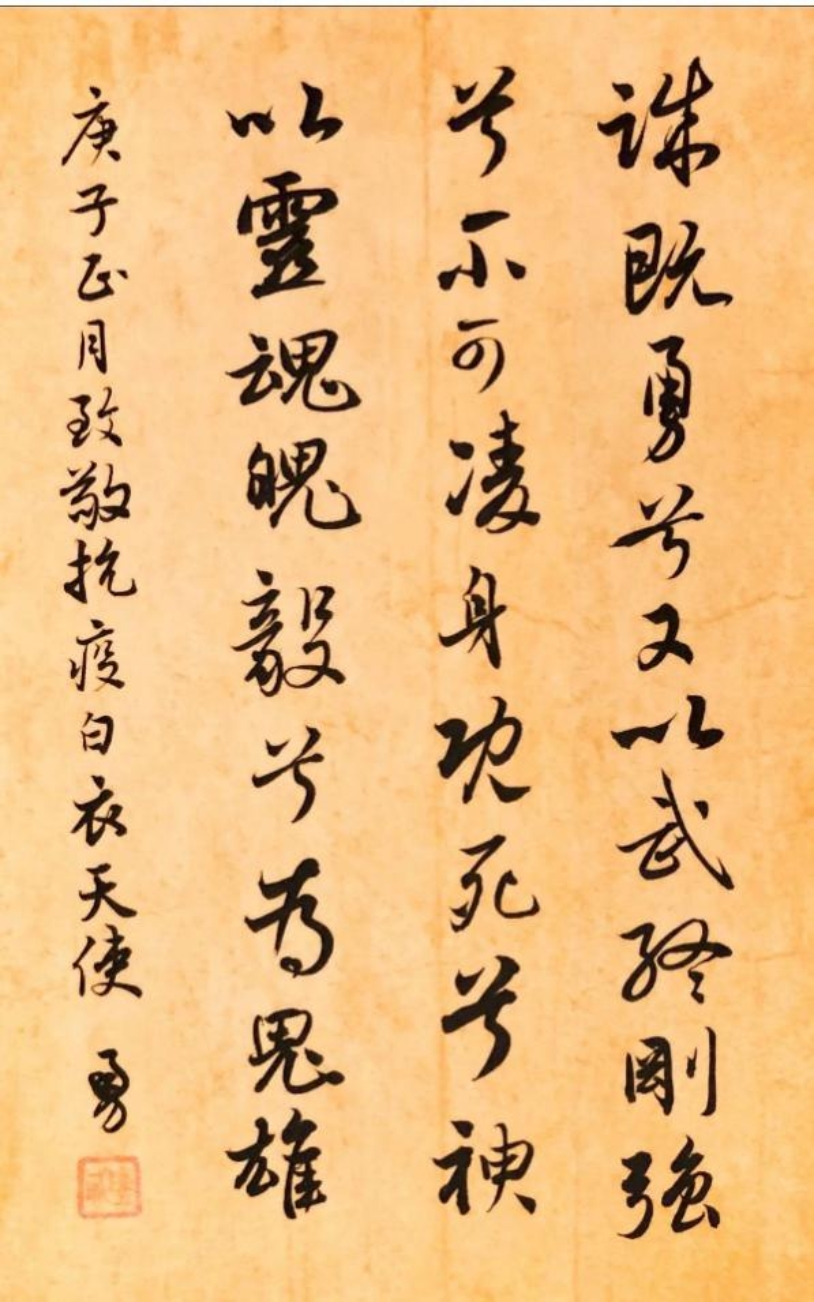 誠既勇兮又以武終剛強
兮不可凌身既死兮神
以靈魂魄毅兮為鬼雄
庚子正月致敬抗疫白衣天使 勇